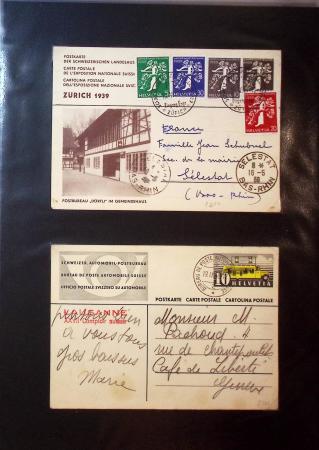 POSTKARTE
DER SCHWEIZERISCHEN LANDESAUS
CARTE POSTALE
DE L'EXPOSITION NATIONALE SUISSE
CARTOLINA POSTALE
DELL'ESPOSIZIONE NAZIONALE SVIZ.
ZÜRICH 1939
HELVETIA
HELVETIA
HELVETIA
HELVETIA
HELVETIA
ZÜRICH
France
Famille Jean
Sélestat
(Bas-Rhin)
SÉLESTAT
16-5
39
BAS-RHIN
POSTBUREAU „DÖRFLI“ IM GEMEINEHAUS
SCHWEIZER. AUTOMOBIL-POSTBUREAU
BUREAU DE POSTE AUTOMOBILE SUISSE
UFFICIO POSTALE SVIZZERO SU AUTOMOBILE
10
HELVETIA
POSTKARTE CARTE POSTALE CARTOLINA POSTALE
LAUSANNE
Comptoir suisse
à vous tous
gros baisers
Marie
Monsieur M.
rue de chantepoulet
Café de la Liberté
Genève